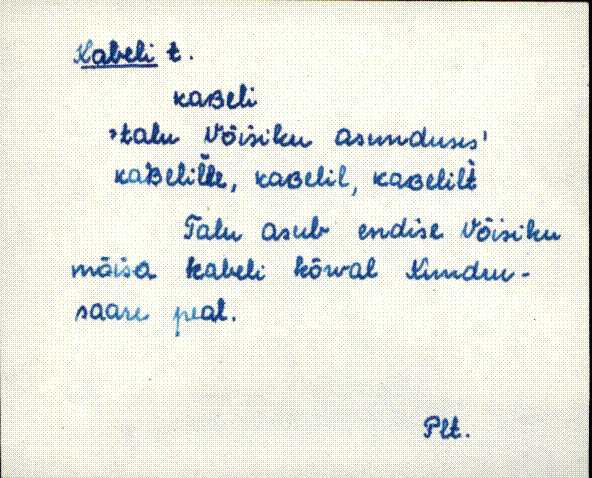 Kabeli t.
kaʙeli
'talu Võisiku asunduses'
kaʙelil̆le, kaʙelil, kaʙelilt̀
Talu asub endise Võisiku
mõisa kabeli kõrval Kundru-
saare peal.
Plt.